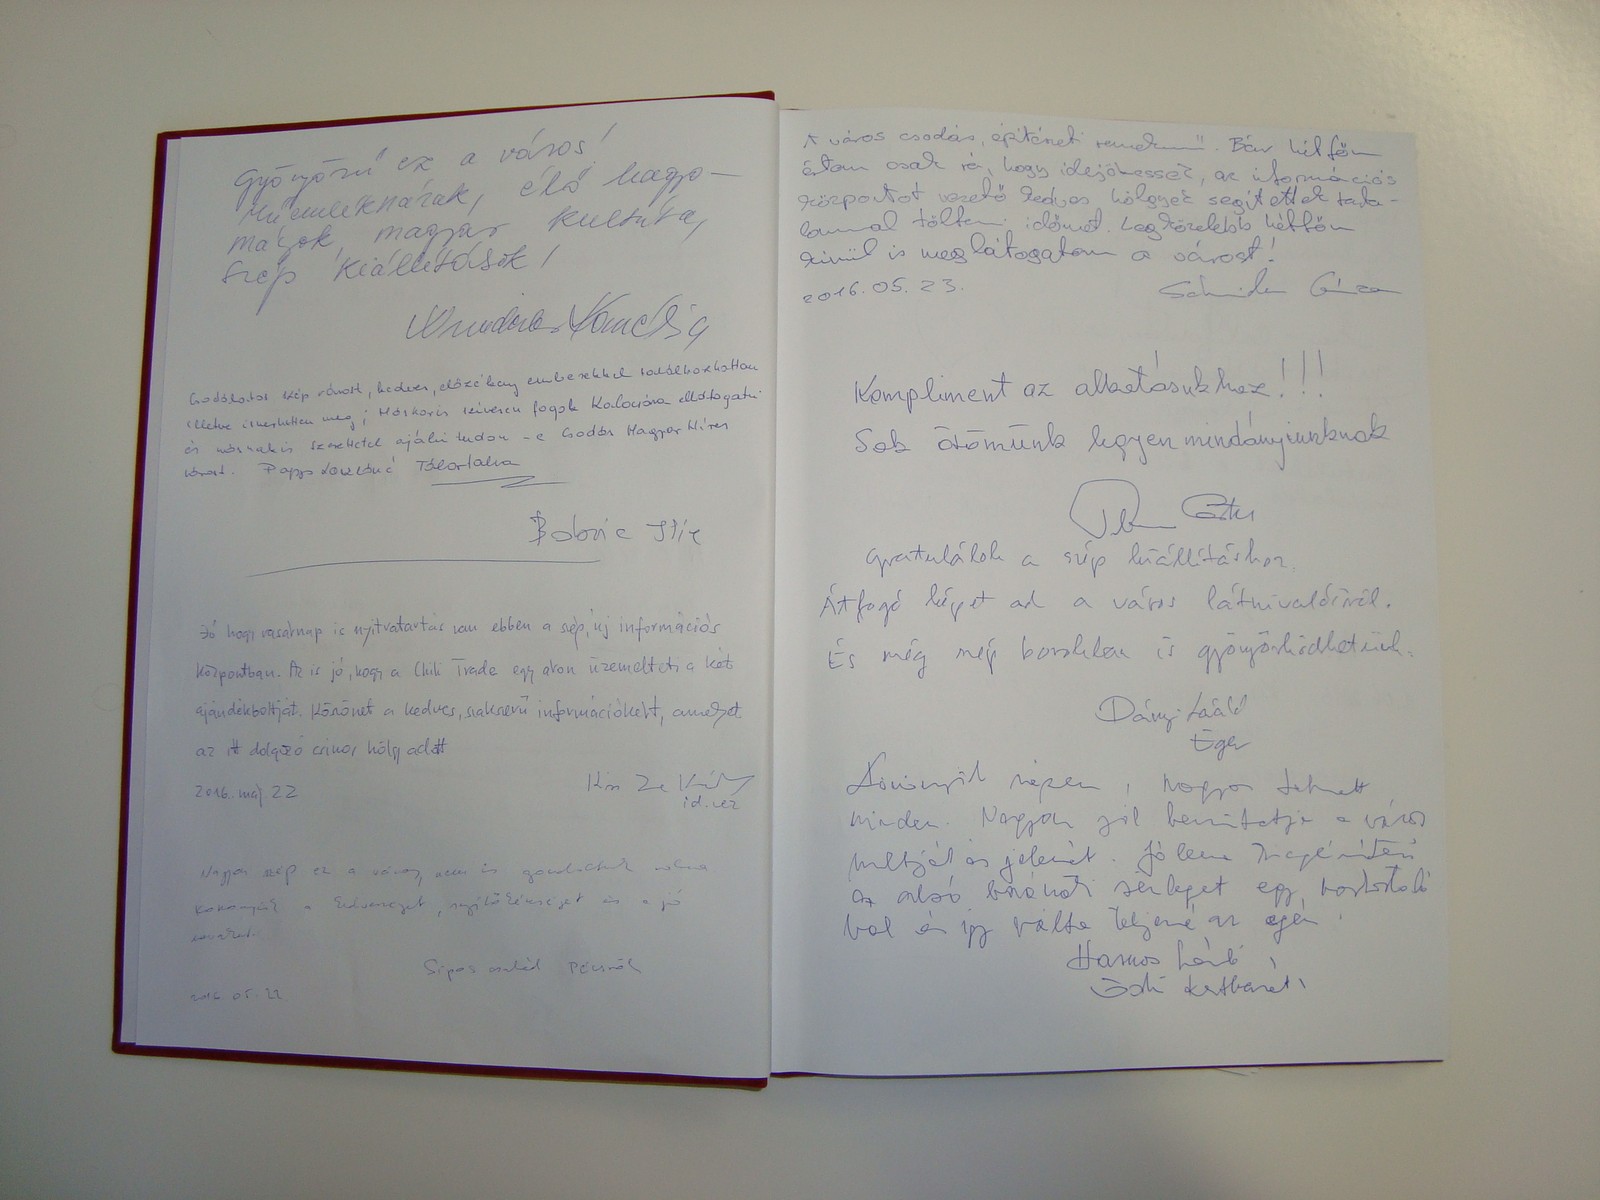 Gyönyörű ez a város!
Műemlékházak, élő hagyo-
mányok, magyar kultúra,
szép kiállítások!
Csodálatos szép várost, kedves, előzékeny emberekkel találkozhattam
illetve ismerhettem meg; Máskoris szívesen fogok Kalocsára ellátogatni
és másnakis szeretettel ajálni tudom - e Csodás Magyar Híres
várost. Papp Lászlóné
Jó hogy vasárnap is nyitvatartás van ebben a szép, új információs
központban. Az is jó, hogy a Chili Trade egy áron üzemelteti a két
ajándékboltját. Köszönet a kedves, szakszerű információkért, amelyet
az itt dolgozó csinos hölgy adott
2016. máj 22
id. vez
Nagyon szép ez a város, nem is gondoltuk volna
köszönjük a kedvességet, segítőkészséget és a jó
Sipos család Pécsről
2016. 05. 22.
A város csodás, építészeti remekmű. Bár hétfőn
értem csak rá, hogy idejöhessek, az információs
központot vezető kedves hölgyek segítettek tarta-
lommal tölteni időmet. Legközelebb hétfőn
kívül is meglátogatom a várost!
2016. 05. 23.
Géza
Kompliment az alkotásukhoz!!!
Sok örömünk legyen mindányiunknak
Gratulálok a szép kiállításhoz.
Átfogó képet ad a város látnivalóiról.
És még szép borokban is gyönyörködhetünk.
Dányi László
Eger
Köszönjük szépen, Nagyon tetszett
minden. Nagyon jól bemutatja a város
múltját és jelenét. Jó lenne
az alsó szerleget egy
ból és így válna teljessé az egész!
Harmos László